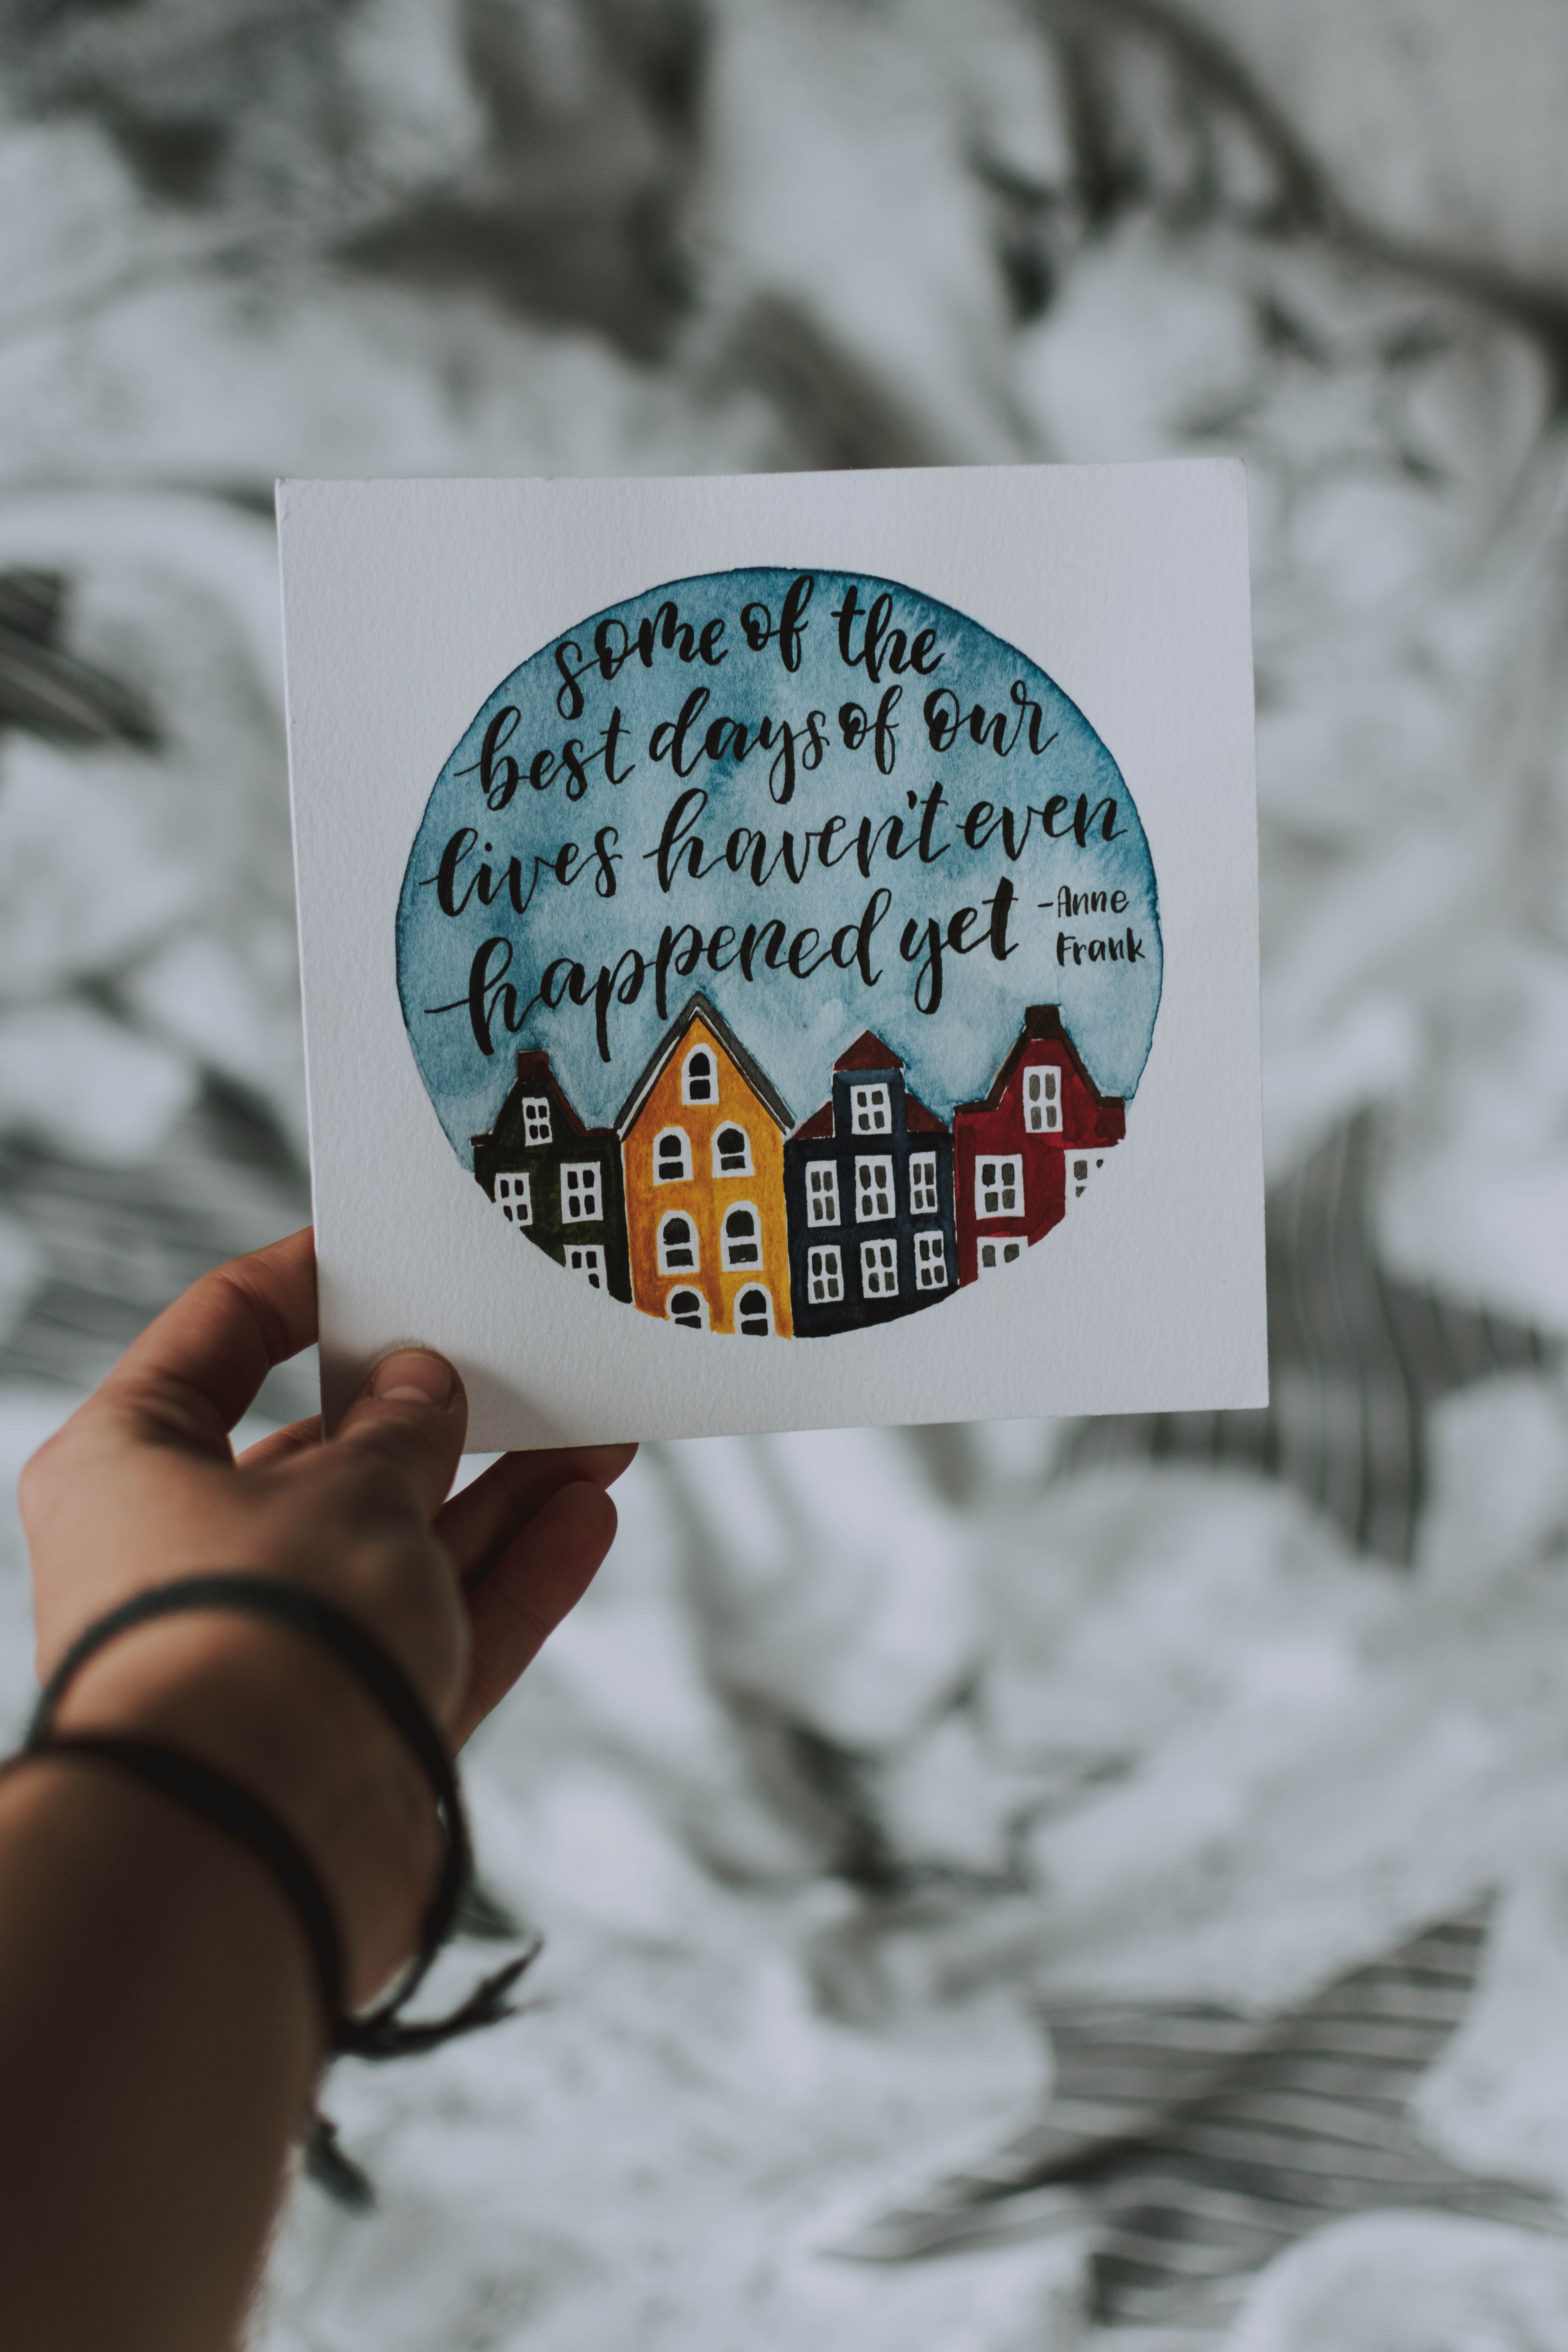 some of the
best days of our
lives haven't even
happened yet
-Anne
Frank